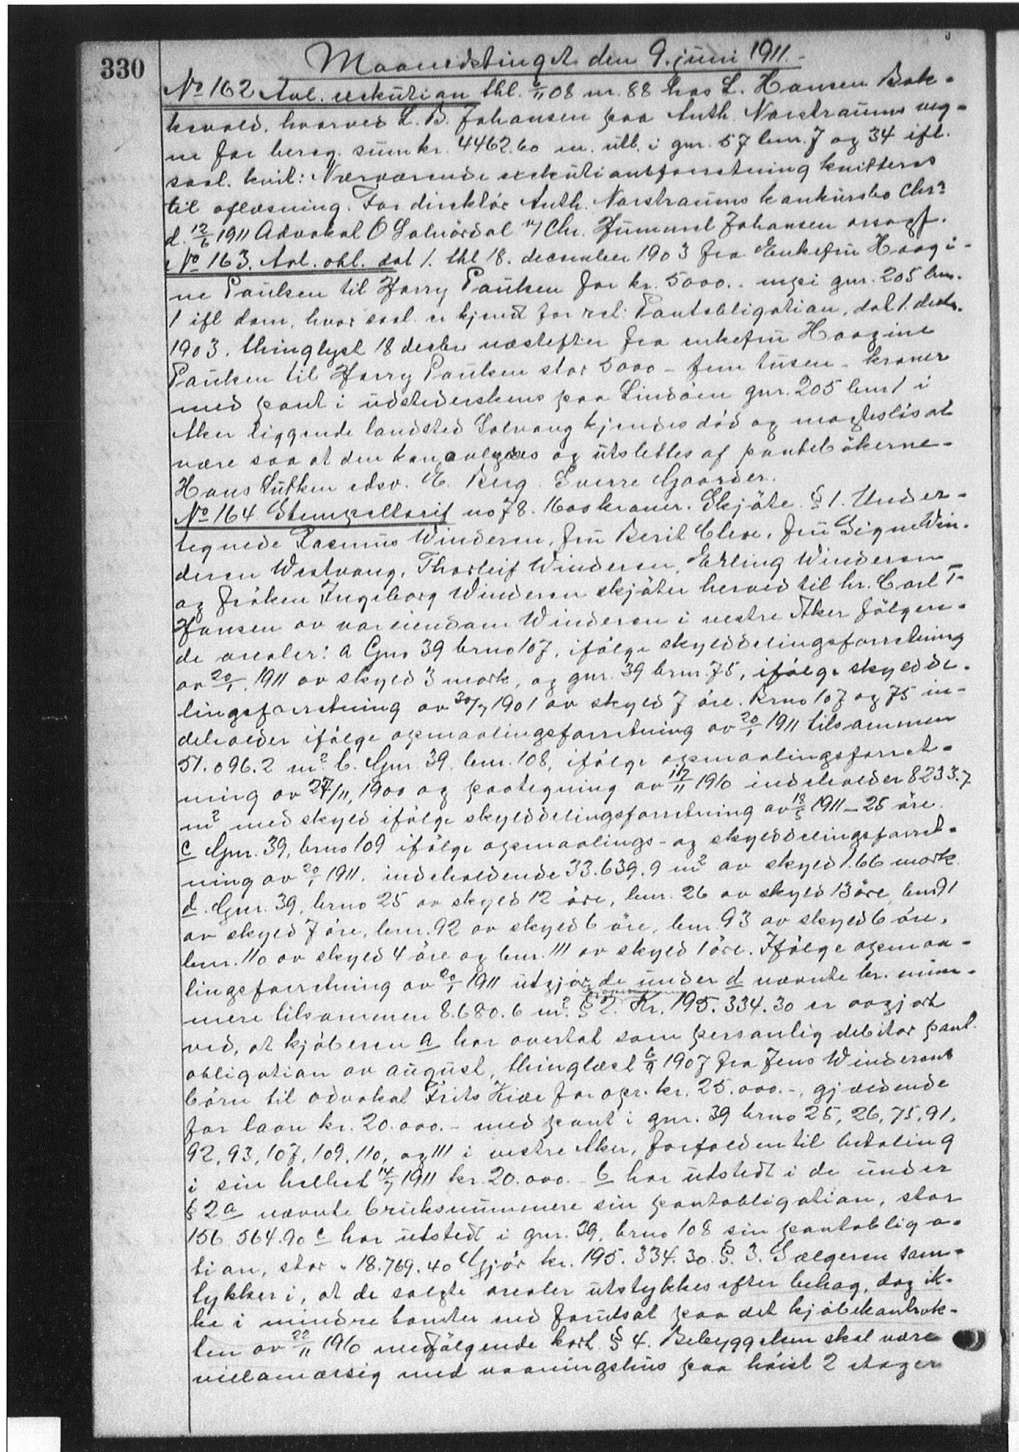 330
Maanedstinget den 9. juni 1911.
No 162 Avl. exekution thl. 6/11 08 nr. 88 hos L. Hansen Bak-
kevold, hvorved L. B. Johansen paa Anth. Norstraums veg-
ne for bereg. sum kr. 4462.60 m. utl. i gnr. 57 bnr. 7 og 34 ifl.
saal. kvit: Nærværende exekutionsforretning kvitteres
til avlæsning. For direktør Anth. Norstraums konkursbo Chra
d. 12/6 1911 Advokat O Solnørdal v/ Chr. Johansen
No 163. Avl. obl. dat 1. thl 18. december 1903 fra Enkefru Haagi-
ne Paulsen til Harry Paulsen for kr. 5000.- i gnr. 205 bnr.
1 ifl dom, hvor saal. er kjendt for ret: Pantobligation, dat 1. decbr.
1903, thinglyst 18 decbr næstefter fra enkefru Haagine
Paulsen til Harry Paulsen stor 5000 - fem tusen - kroner
med pant i utstederskens paa Lindøen gnr. 205 bnr 1 i
Aker liggende landsted Solvang kjendes død og magtesløs at
være saa at den kan avlyses og utslettes af pantebøkerne -
Hans Lütken edsv. E. Berg. Sverre Gaarder.
No 164 Stempeltarif no 78. 1600 kroner. Skjøte. § 1. Under-
tegnede Rasmus Winderen, fru Beril Cleve, fru Signe Win-
deren Westvang, Thorleif Winderen, Erling Winderen
og frøken Ingeborg Winderen skjøter herved til hr. Carl T-
Hansen av vor eiendom Winderen i vestre Aker følgen-
de arealer: a Gnr 39 brno 107, ifølge skylddelingsforretning
av 20/1 1911 av skyld 3 mark, og gnr. 39 brnr. 75, ifølge skyldde-
lingsforretning av 30/7 1901 av skyld 7 øre. Brno 107 og 75 in-
deholder ifølge opmaalingsforretning av 20/1 1911 tilsammen
51.096.2 m² b. Gnr. 39, bnr. 108, ifølge opmaalingsforret-
ning av 27/11 1900 og paategning av 17/11 1910 indeholder 8233.7
m² med skyld ifølge skylddelingsforretning av 12/5 1911 - 25 øre.
c Gnr. 39, brno 109 ifølge opmaalings- og skylddelingsforret-
ning av 20/1 1911. indeholdende 33.639.9 m² av skyld 1.66 mark
d. Gnr. 39, brno 25 av skyld 12 øre, bnr. 26 av skyld 13 øre, bnr 91
av skyld 7 øre, bnr. 92 av skyld 6 øre, bnr. 93 av skyld 6 øre,
bnr. 110 av skyld 4 øre og bnr. 111 av skyld 1 øre. Ifølge opmaa-
lingsforretning av 20/1 1911 utgjør de under d nævnte br. num-
mere tilsammen 8.680.6 m². § 2. Kr. 195.334.30 er avgjort
ved, at kjøberen a har overtat som personlig debitor pant
obligation av august, thinglæst 6/9 1907 fra Jens Winderens
børn til advokat Frits Kiær for opr. kr. 25.000.-, gjældende
for laan kr. 20.000.- med pant i gnr. 39 brno 25, 26, 75, 91,
92, 93, 107, 109, 110, og 111 i vestre Aker, forfalden til betaling
i sin helhet 14/7 1911 kr. 20.000.- b har utstedt i de under
§ 2 a nævnte bruksnummere sin pantobligation, stor
156 564.90 c har utstedt i gnr. 39, brno 108 sin pantobliga-
tion, stor " 18.769.40 Gjør kr. 195.334.30. § 3. Sælgeren sam-
tykker i, at de solgte arealer utstykkes efter behag, dog ik-
ke i mindre tomter end forutsat paa det kjøbekontrak-
ten av 22/11 1910 medfølgende kart. § 4. Bebyggelsen skal være
villamæssig med vaaningshus paa høist 2 etager